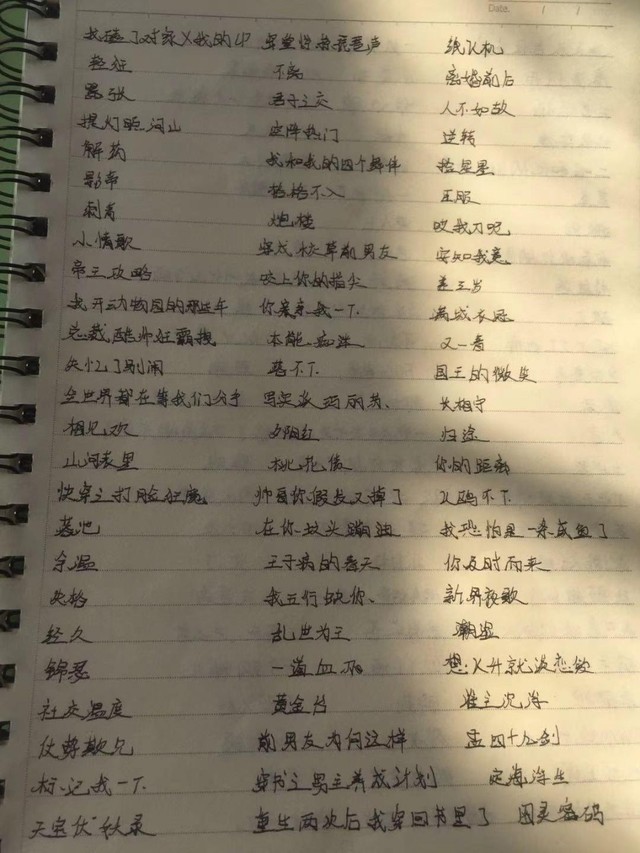 Date.
我磕了对家X我的CP 穿堂惊掠琵琶声 纸飞机
轻狂 不熟 离婚前后
嚣张 君子之交 人不如故
提灯照河山 空降热门 逆转
解药 我和我的四个伴侣 捡星星
影帝 格格不入 臣服
刺青 炮楼 吃我刀吧
小情歌 穿成校草前男友 安知我意
帝王攻略 咬上你的指尖 差三岁
我开动物园的那些年 你亲亲我一下 满城衣冠
总裁酷帅狂霸拽 本能痴迷 又一春
失忆了别闹 落不下 国王的微笑
全世界都在等我们分手 骂实玛丽苏 长相守
相见欢 夕阳红 归途
山河表里 桃花债 你的距离
快穿之打脸狂魔 师哥你假发又掉了 火鸦不下
落池 在你坟头蹦迪 我恐怕是一条咸鱼了
余温 王子病的春天 你及时而来
失格 我五行缺你 新界夜歌
轻久 乱世为王 潮湿
锦瑟 一面血 想火井就没恋爱
社交温度 黄金台 谁主沉浮
仗势欺人 前男友为何这样 孟四十九剑
标记我一下 穿书之男主养成计划 定海浮生
天宝伏妖录 重生两次后我穿回书里了 图灵密码